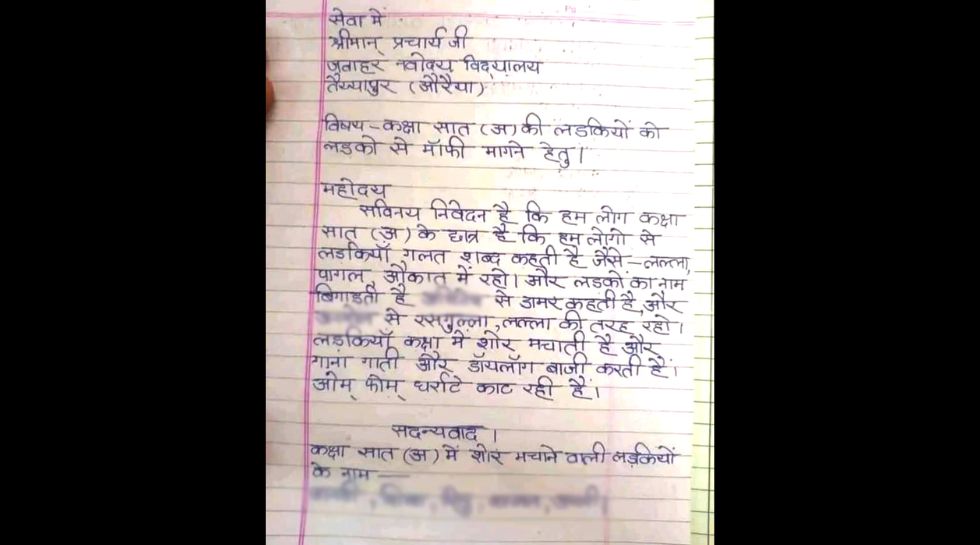 सेवा में
श्रीमान् प्रचार्य जी
जवाहर नवोदय विद्यालय
तैय्यापुर (औरैया)
विषय - कक्षा सात (अ) की लडकियों को
लडको से मॉफी मागने हेतु।
महोदय
सविनय निवेदन है कि हम लोग कक्षा
सात (अ) के छात्र है कि हम लोगो से
लडकियाँ गलत शब्द कहती है जैसे - लल्ला,
पागल, औकात में रहो। और लडकों का नाम
बिगाडती है से डामर कहती है, और
से रसगुल्ला, लल्ला की तरह रहो।
लडकियाँ कक्षा में शोर मचाती है और
गाना गाती और डॉयलॉग बाजी करती है।
ओम् फोम् धर्राटे काट रही है।
सदन्यवाद ।
कक्षा सात (अ) में शोर मचाने वाली लड़कियों
के नाम —